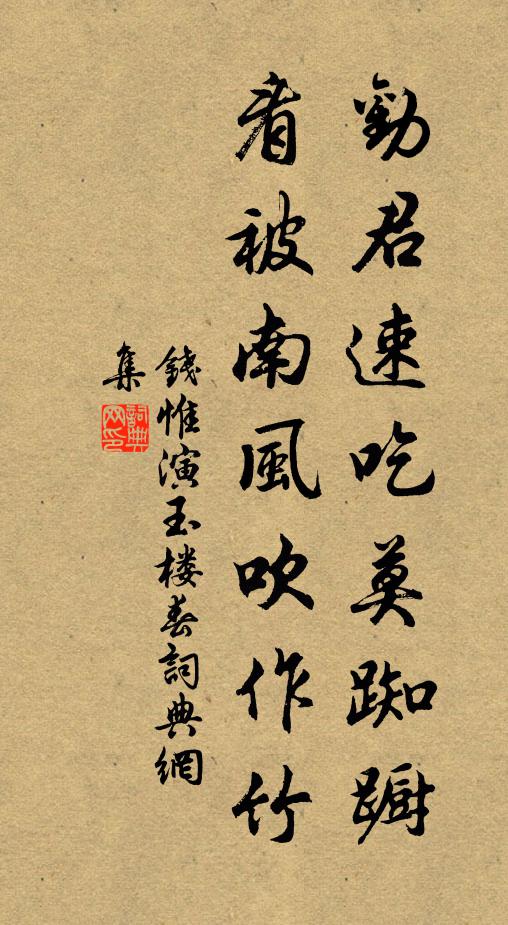 勸君速吃莫踟躕
看被南風吹作竹
錢惟演玉楼春詞典網
集
詞典
网印